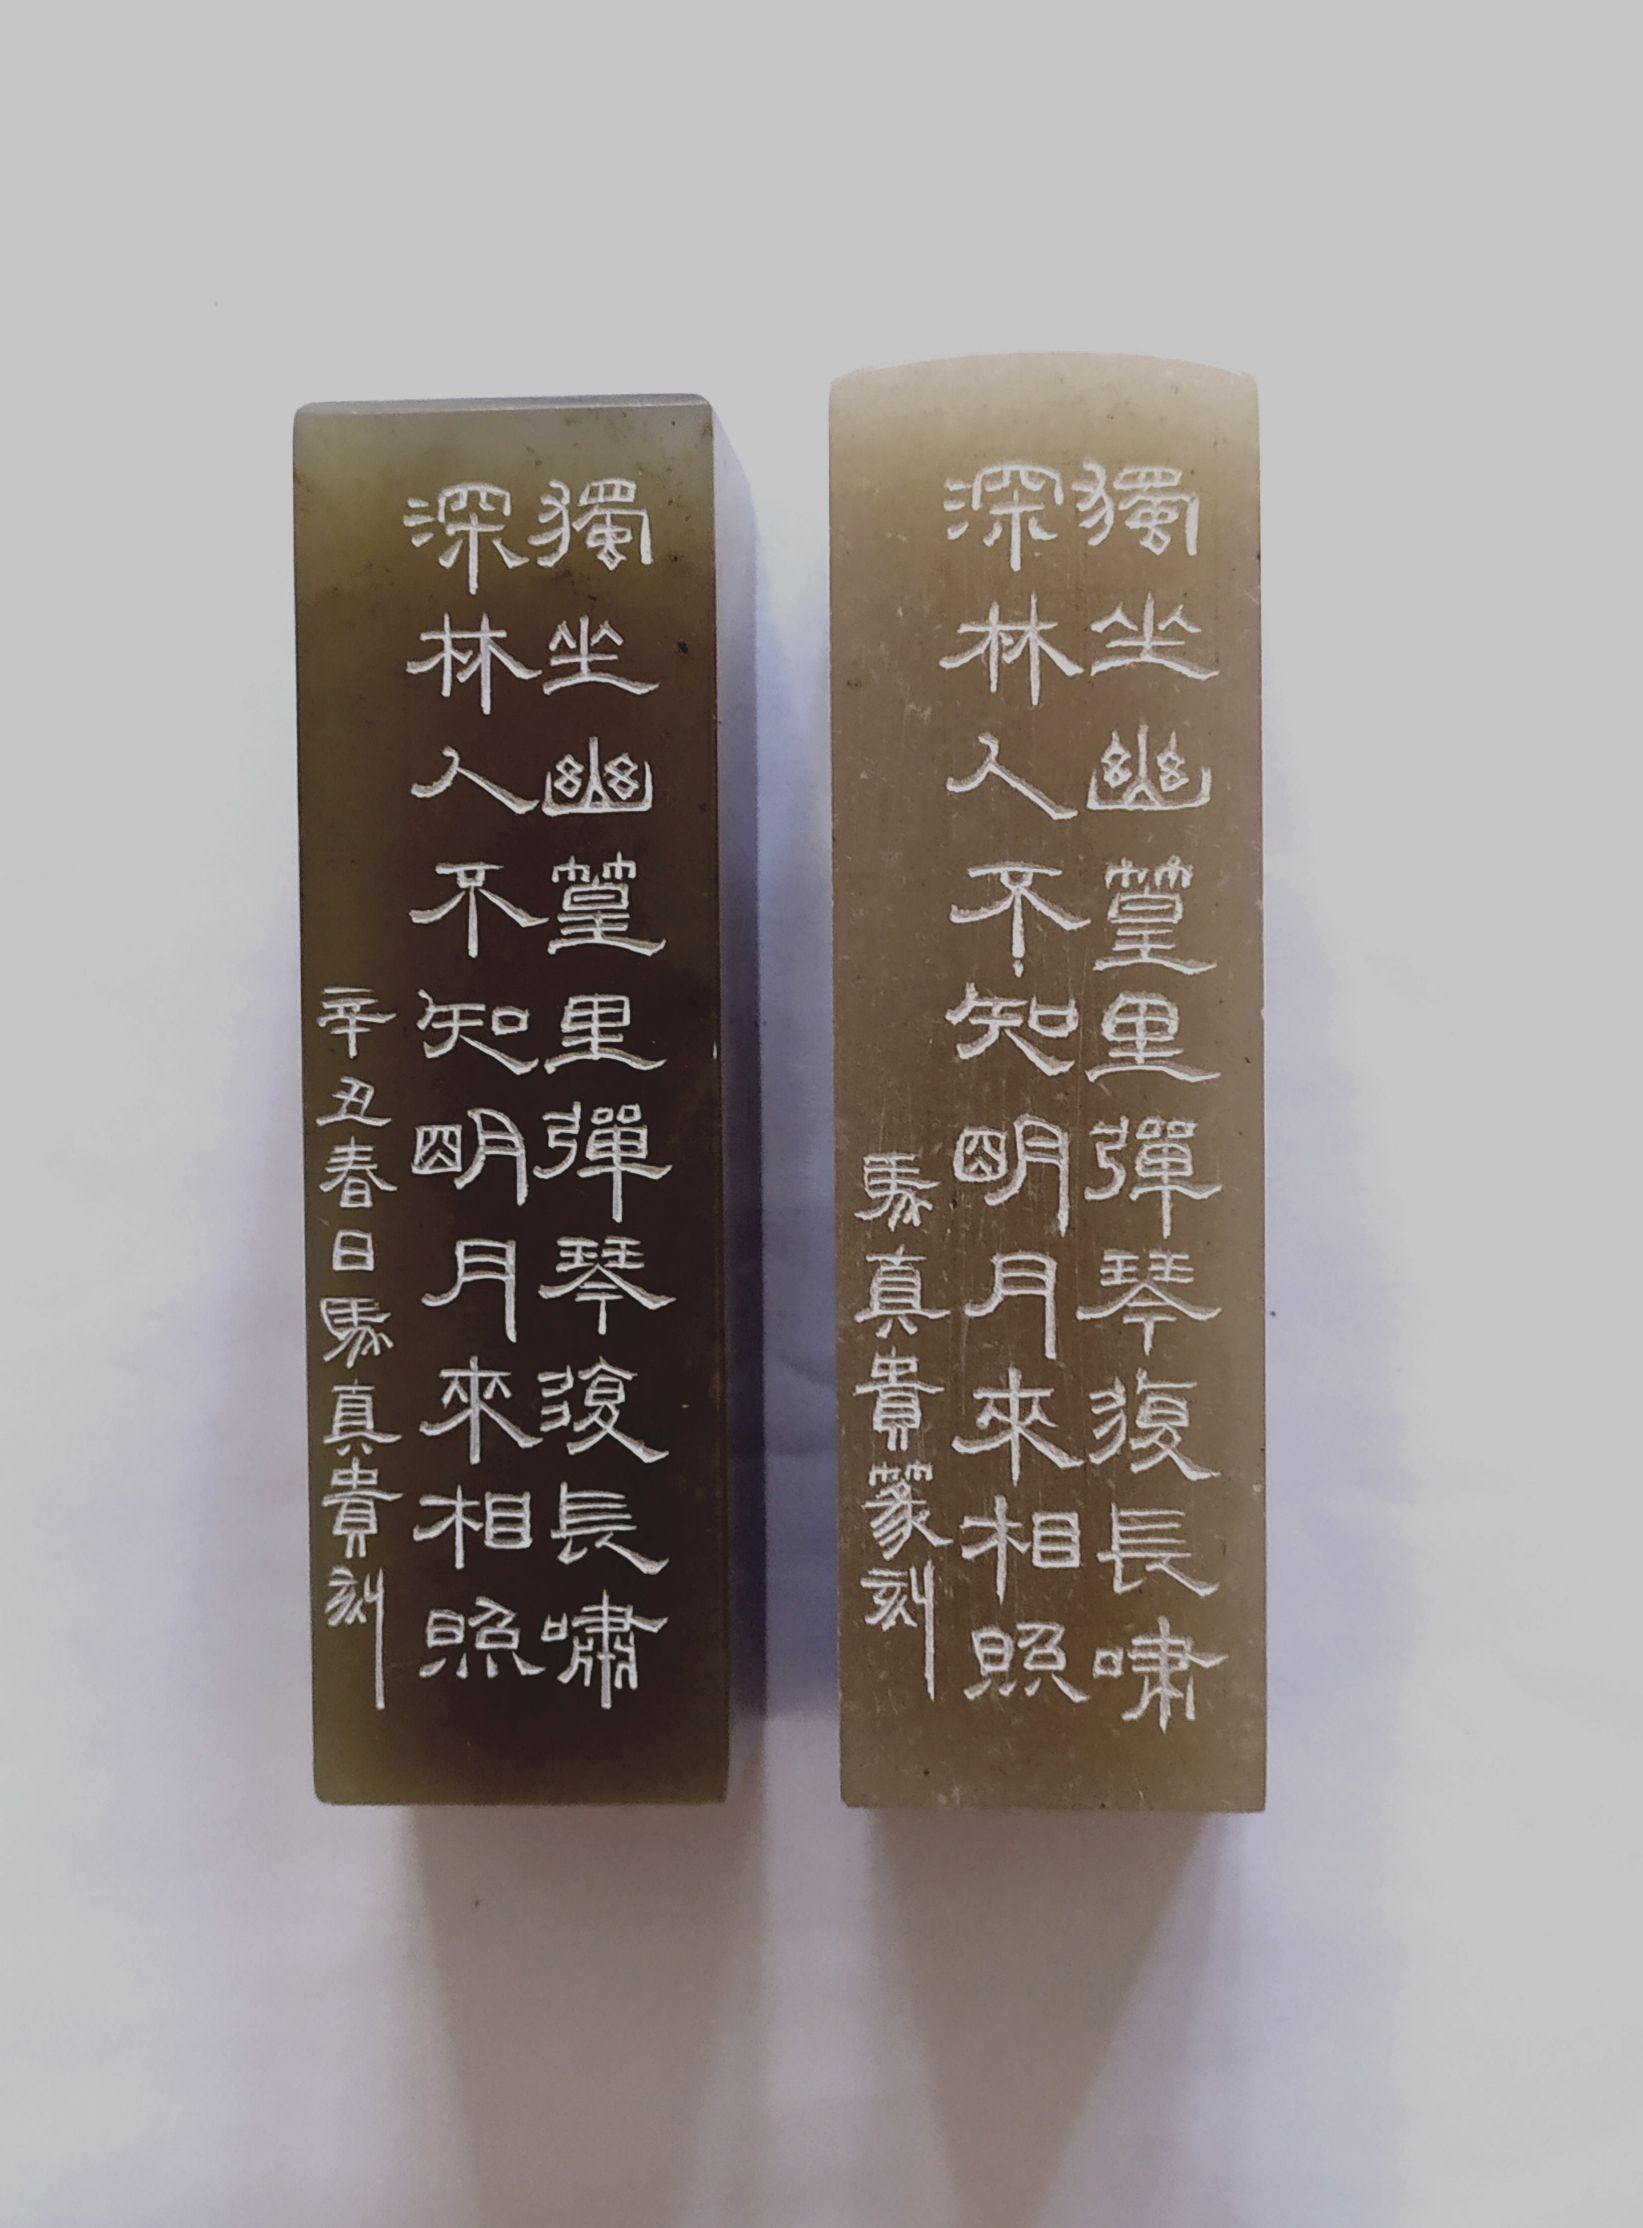 獨坐幽篁里彈琴復長嘯
深林人不知明月來相照
辛丑春日馬真貴刻
獨坐幽篁里彈琴復長嘯
深林人不知明月來相照
馬真貴篆刻